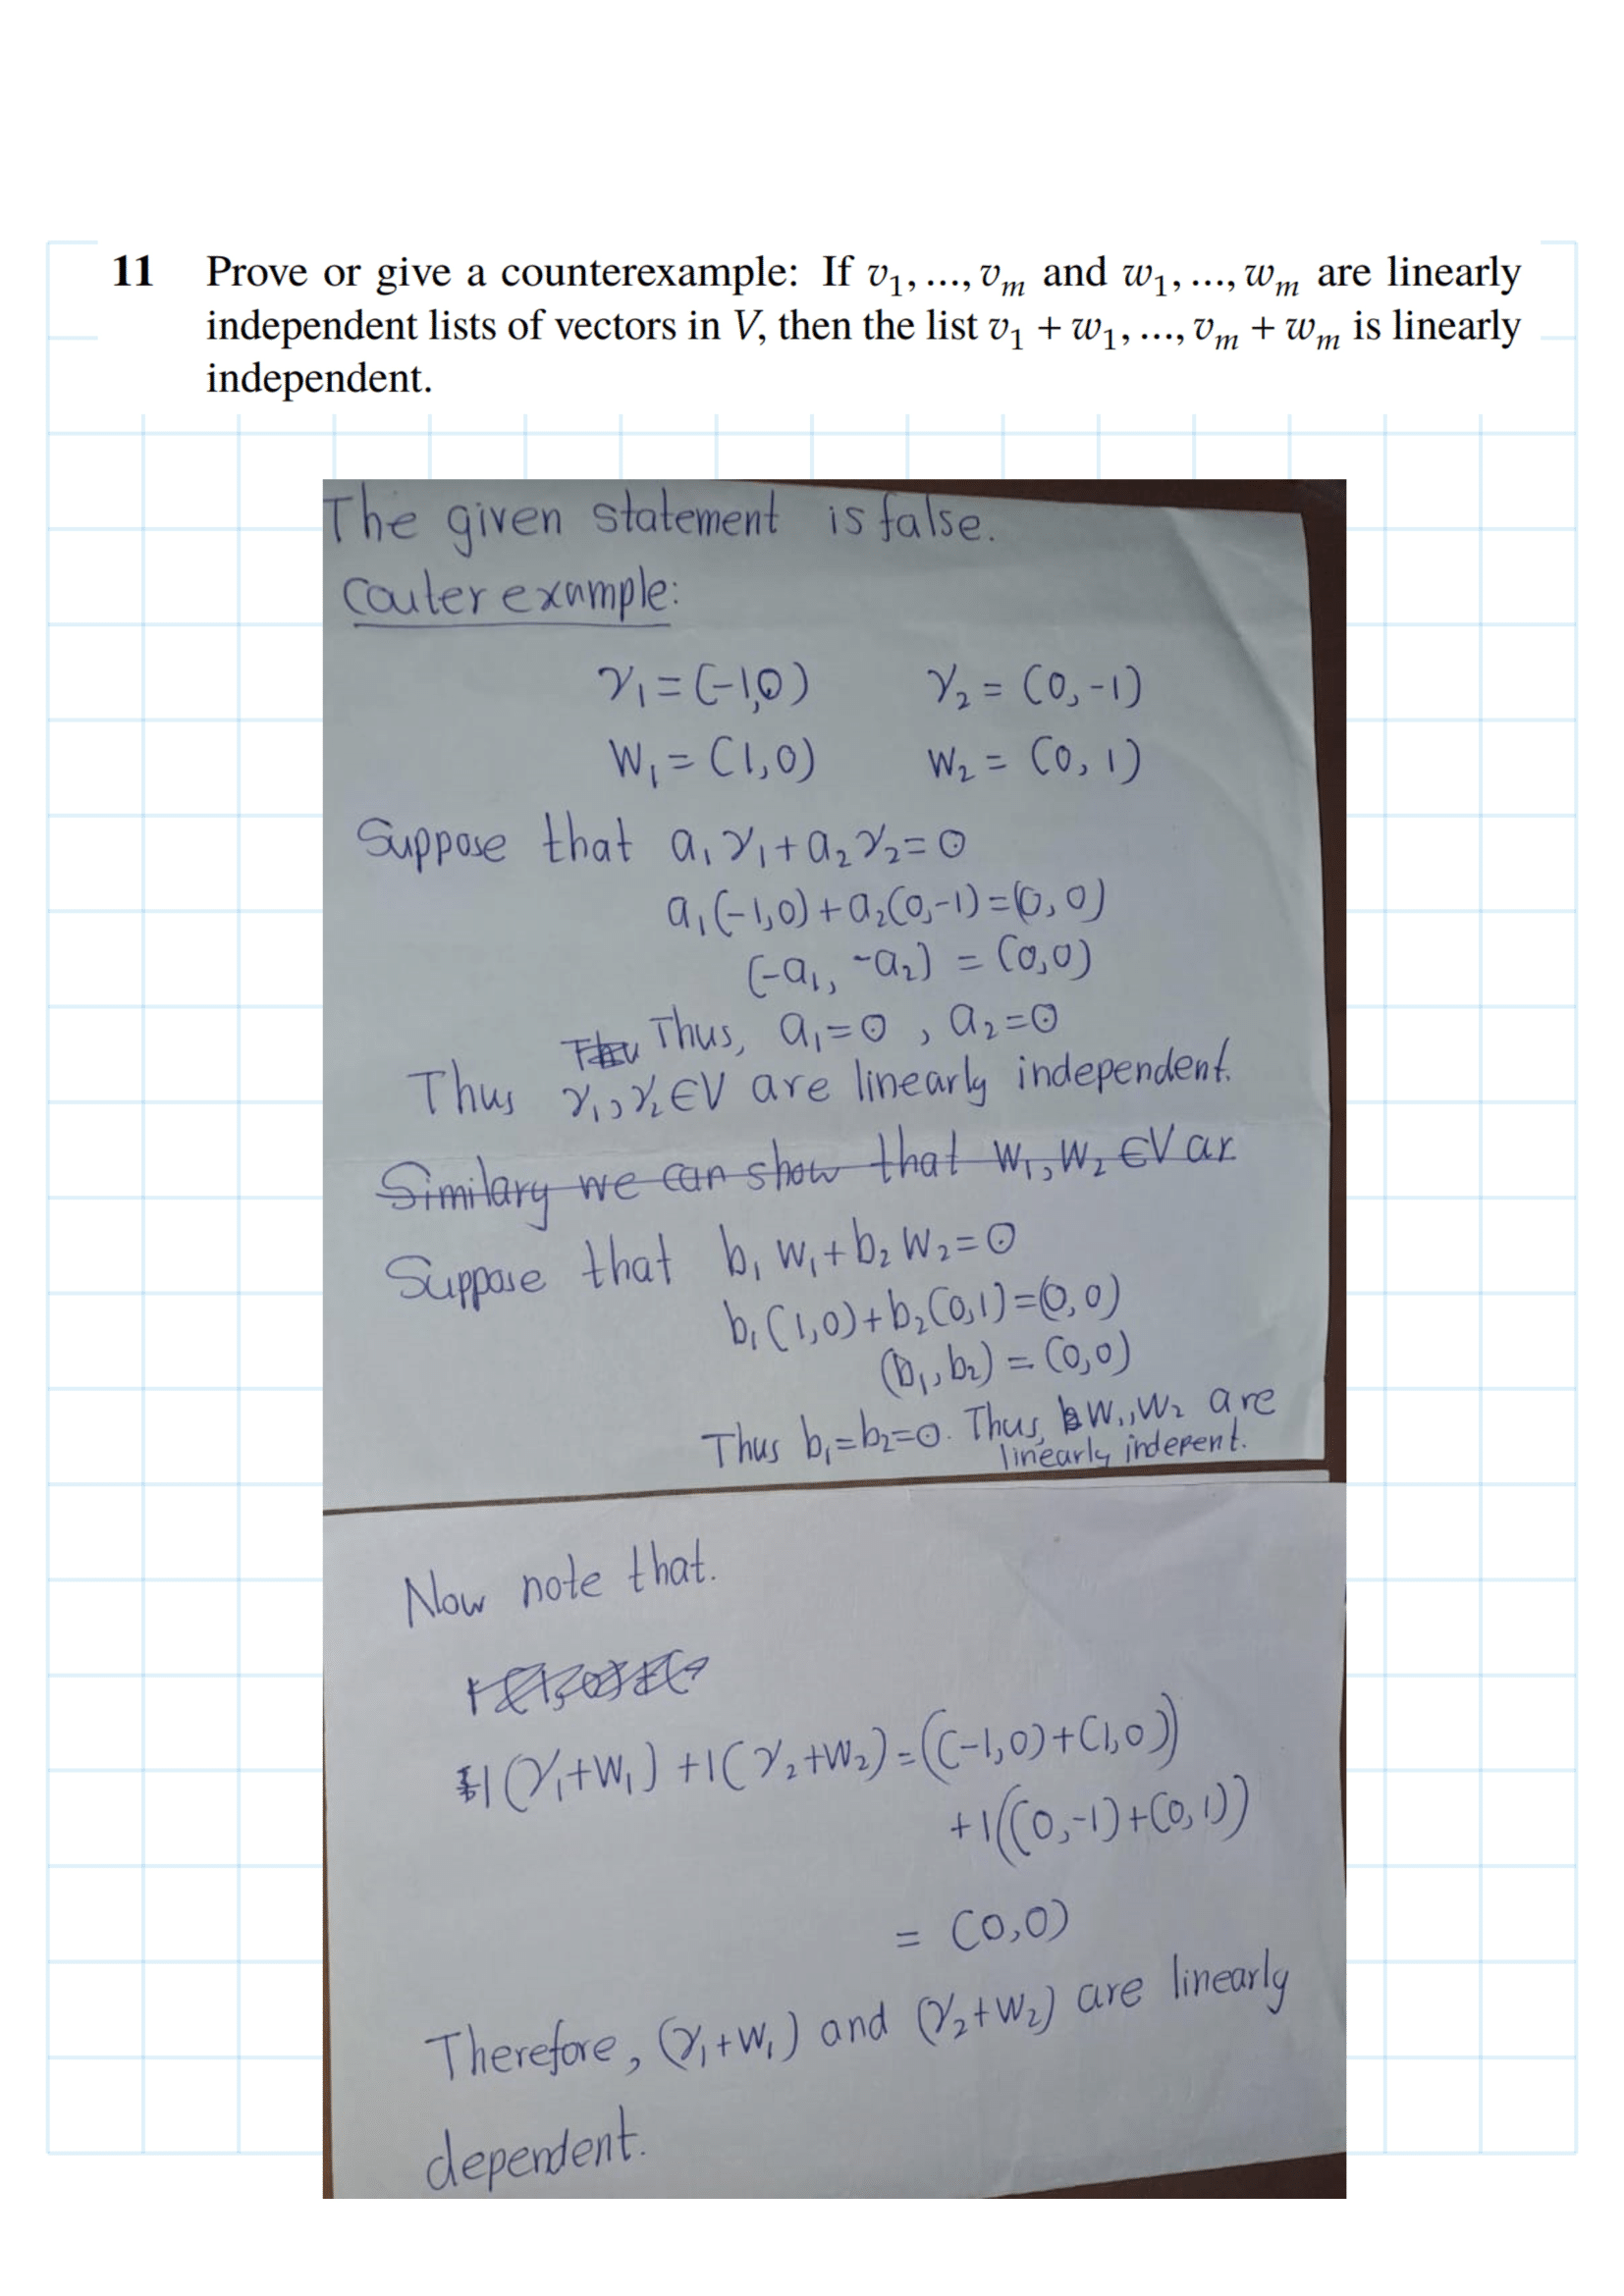 11 Prove or give a counterexample: If v₁, ..., vₘ and w₁, ..., wₘ are linearly
independent lists of vectors in V, then the list v₁ + w₁, ..., vₘ + wₘ is linearly
independent.
The given statement is false.
Couter example:
v₁ = (-1,0) v₂ = (0,-1)
W₁ = (1,0) W₂ = (0,1)
Suppose that a₁v₁+a₂v₂=0
a₁(-1,0)+a₂(0,-1)=(0,0)
(-a₁, -a₂) = (0,0)
Thus, a₁=0, a₂=0
Thus v₁,v₂∈V are linearly independent.
Similary we can show that W₁,W₂∈V ar
Suppose that b₁W₁+b₂W₂=0
b₁(1,0)+b₂(0,1)=(0,0)
(b₁,b₂) = (0,0)
Thus b₁=b₂=0. Thus, W₁,W₂ are
linearly indepent.
Now note that.
1(v₁+W₁)+1(v₂+W₂)=((-1,0)+(1,0))
+1((0,-1)+(0,1))
= (0,0)
Therefore, (v₁+W₁) and (v₂+W₂) are linearly
dependent.